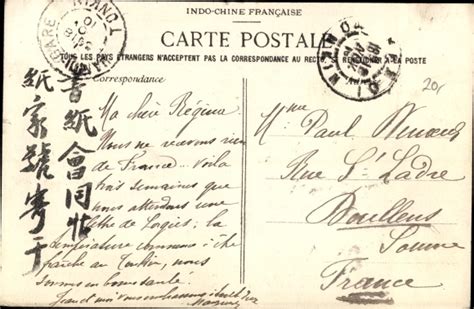 INDO-CHINE FRANÇAISE
CARTE POSTALE
TOUS LES PAYS ÉTRANGERS N'ACCEPTENT PAS LA CORRESPONDANCE AU RECTO, SE RENSEIGNER A LA POSTE
Correspondance
TONKIN
HANOI
20f
Ma chère Régina
Nous ne recevons rien
de France. Voilà
trois semaines que
nous attendons une
de Logies. La
température commence à être
fraîche au Tonkin, nous
sommes en bonne santé.
書紙會同
紙家號寄干
Mme Paul
Rue St Ladre
Doullens
Somme
France